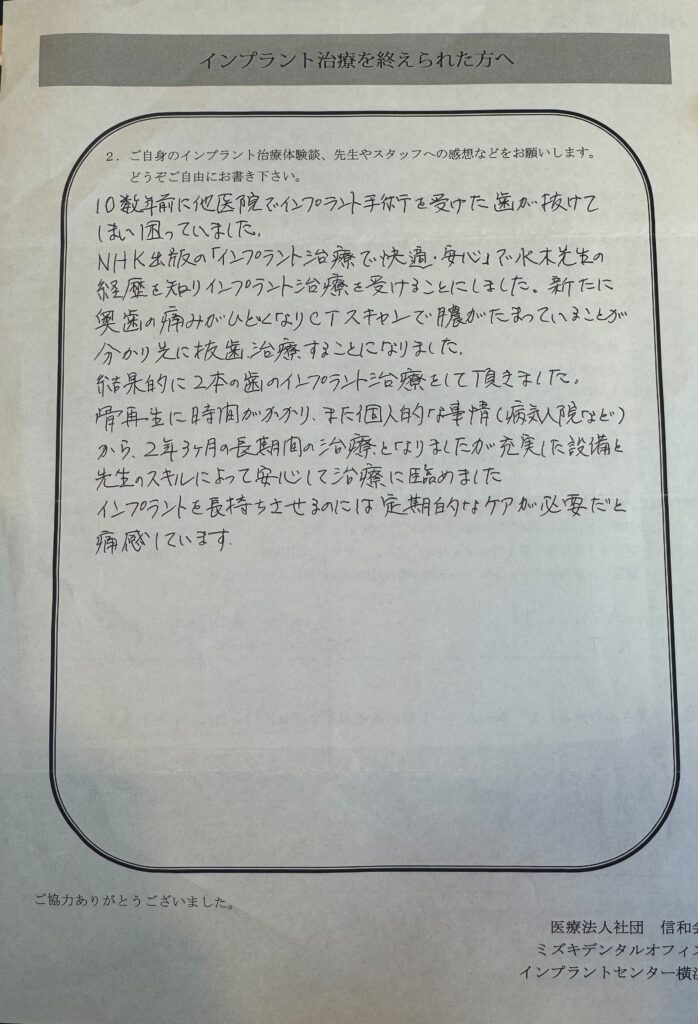 インプラント治療を終えられた方へ
2．ご自身のインプラント治療体験談、先生やスタッフへの感想などをお願いします。
どうぞご自由にお書き下さい。
10数年前に他医院でインプラント手術を受けた歯が抜けて
しまい困っていました。
NHK出版の「インプラント治療で快適・安心」で水木先生の
経歴を知りインプラント治療を受けることにしました。新たに
奥歯の痛みがひどくなりCTスキャンで膿がたまっていることが
分かり先に抜歯治療することになりました。
結果的に2本の歯のインプラント治療をして頂きました。
骨再生に時間がかかり、また個人的な事情(病気入院など)
から、2年3ヶ月の長期間の治療となりましたが充実した設備と
先生のスキルによって安心して治療に臨めました
インプラントを長持ちさせるのには定期的なケアが必要だと
痛感しています.
ご協力ありがとうございました。
医療法人社団　信和会
ミズキデンタルオフィス
インプラントセンター横浜